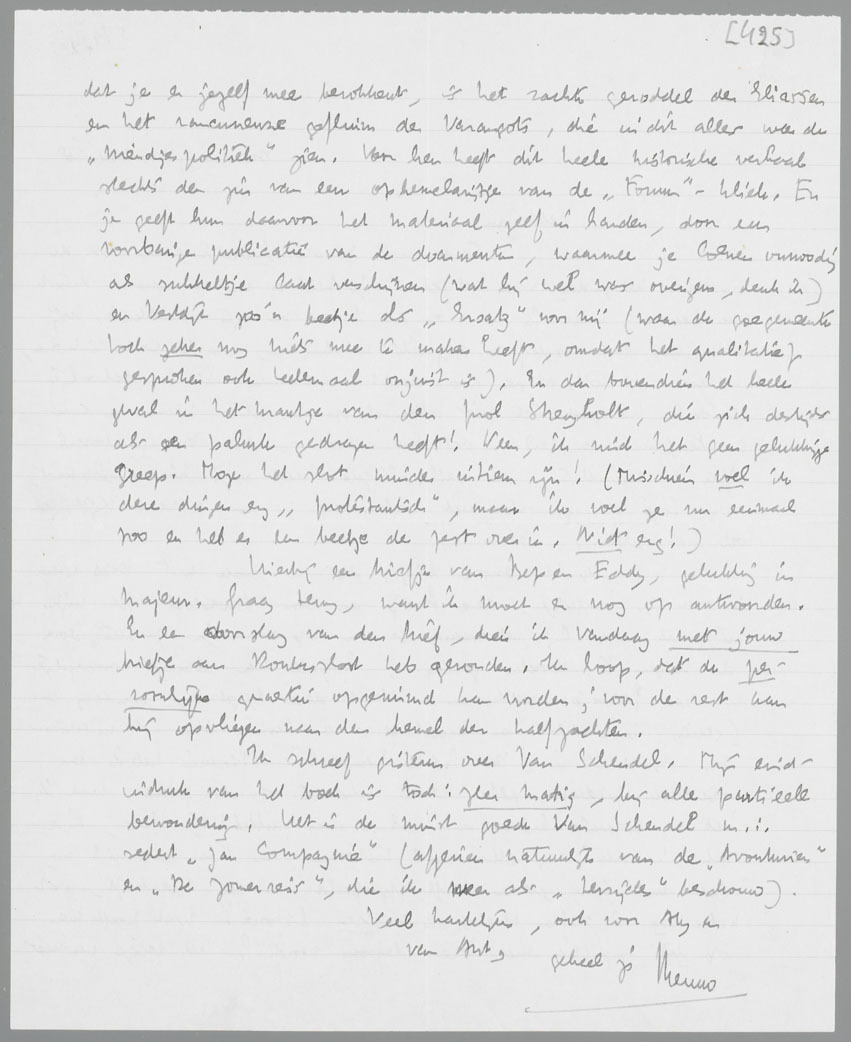 [425]
dat je er jezelf mee berokkent, is het zachte geroddel der Eliassen
en het rancuneuze gefluim der Varangots, die in dit alles weer de
„vriendjespolitiek" zien. Voor hen heeft dit heele historische verhaal
slechts den zin van een ophemelarijtje van de „Forum"-kliek. En
je geeft hun daarvoor het materiaal zelf in handen, door een
voorbarige publicatie van de documenten, waarmee je Coenen onnoodig
als sukkeltje laat verschijnen (wat hij wel was overigens, denk ik)
en Vestdijk zoo'n beetje als „Ersatz" voor mij (waar de goegemeente
toch zeker nog niets mee te maken heeft, omdat het qualitatief
gesproken ook heelemaal onjuist is). En dan bovendien het heele
geval in het mandje van den prol Stenfholt, die zich destijds
als een palurk gedragen heeft! Neen, ik vind het geen gelukkige
greep. Moge het slot minder intiem zijn! (Misschien voel ik
deze dingen erg „protestantsch", maar ik voel ze nu eenmaal
zoo en heb er een beetje de pest over in. Niet erg!)
Hierbij een briefje van Bep en Eddy, gelukkig in
majeur. Graag terug, want ik moet er nog op antwoorden.
En een doorslag van den brief, dien ik vandaag met jouw
briefje aan Kouters­loot heb gezonden. Ik hoop, dat de per-
soonlijke quaestie opgeruimd kan worden; voor de rest kan
hij opvliegen naar den hemel der halfzachten.
Ik schreef gisteren over Van Schendel. Mijn eind-
indruk van het boek is toch: zeer matig, bij alle partieele
bewondering. Het is de minst goede Van Schendel m.i.
sedert „Jan Compagnie" (afgezien natuurlijk van de „Avonturiers"
en „De Zomerreis", die ik meer als „tusschen" beschouw).
Veel hartelijks, ook voor Atty en
van Ant,
geheel je Menno